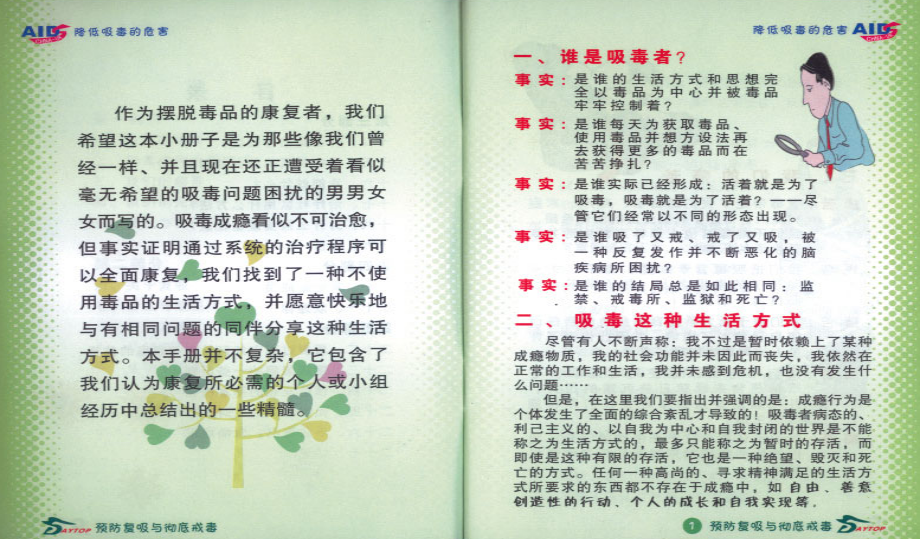 AIDS 降低吸毒的危害
作为摆脱毒品的康复者，我们
希望这本小册子是为那些像我们曾
经一样、并且现在还正遭受着看似
毫无希望的吸毒问题困扰的男男女
女而写的。吸毒成瘾看似不可治愈，
但事实证明通过系统的治疗程序可
以全面康复，我们找到了一种不使
用毒品的生活方式，并愿意快乐地
与有相同问题的同伴分享这种生活
方式。本手册并不复杂，它包含了
我们认为康复所必需的个人或小组
经历中总结出的一些精髓。
DAYTOP 预防复吸与彻底戒毒
降低吸毒的危害 AIDS
一、谁是吸毒者？
事实：是谁的生活方式和思想完
全以毒品为中心并被毒品
牢牢控制着？
事实：是谁每天为获取毒品、
使用毒品并想方设法再
去获得更多的毒品而在
苦苦挣扎？
事实：是谁实际已经形成：活着就是为了
吸毒，吸毒就是为了活着？——尽
管它们经常以不同的形态出现。
事实：是谁吸了又戒、戒了又吸，被
一种反复发作并不断恶化的脑
疾病所困扰？
事实：是谁的结局总是如此相同：监
禁、戒毒所、监狱和死亡？
二、吸毒这种生活方式
尽管有人不断声称：我不过是暂时依赖上了某种
成瘾物质，我的社会功能并未因此而丧失，我依然在
正常的工作和生活，我并未感到危机，也没有发生什
么问题……
但是，在这里我们要指出并强调的是：成瘾行为是
个体发生了全面的综合紊乱才导致的！吸毒者病态的、
利己主义的、以自我为中心和自我封闭的世界是不能
称之为生活方式的，最多只能称之为暂时的存活，而
即使是这种有限的存活，它也是一种绝望、毁灭和死
亡的方式。任何一种高尚的、寻求精神满足的生活方
式所要求的东西都不存在于成瘾中，如自由、善意
创造性的行动、个人的成长和自我实现等．
1 预防复吸与彻底戒毒 DAYTOP